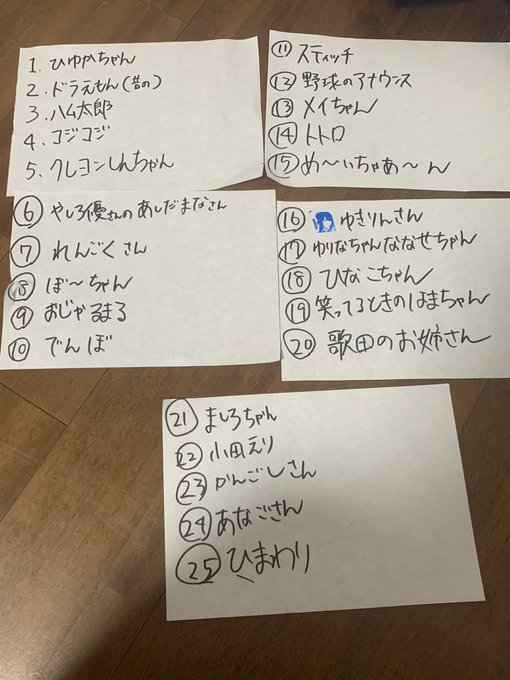 1. ひゆかちゃん
2. ドラえもん(昔の)
3. ハム太郎
4. コジコジ
5. クレヨンしんちゃん
⑥ やしろ優さんのあしだまなさん
⑦ れんごくさん
⑧ ぼ〜ちゃん
⑨ おじゃるまる
⑩ でんぼ
⑪ スティッチ
⑫ 野球のアナウンス
⑬ メイちゃん
⑭ トトロ
⑮ め〜いちゃあ〜ん
⑯ ゆきりんさん
⑰ ゆりなちゃんななせちゃん
⑱ ひなこちゃん
⑲ 笑ってるときのはまちゃん
⑳ 歌田のお姉さん
㉑ ましろちゃん
㉒ 小田えり
㉓ かんごしさん
㉔ あなごさん
㉕ ひまわり